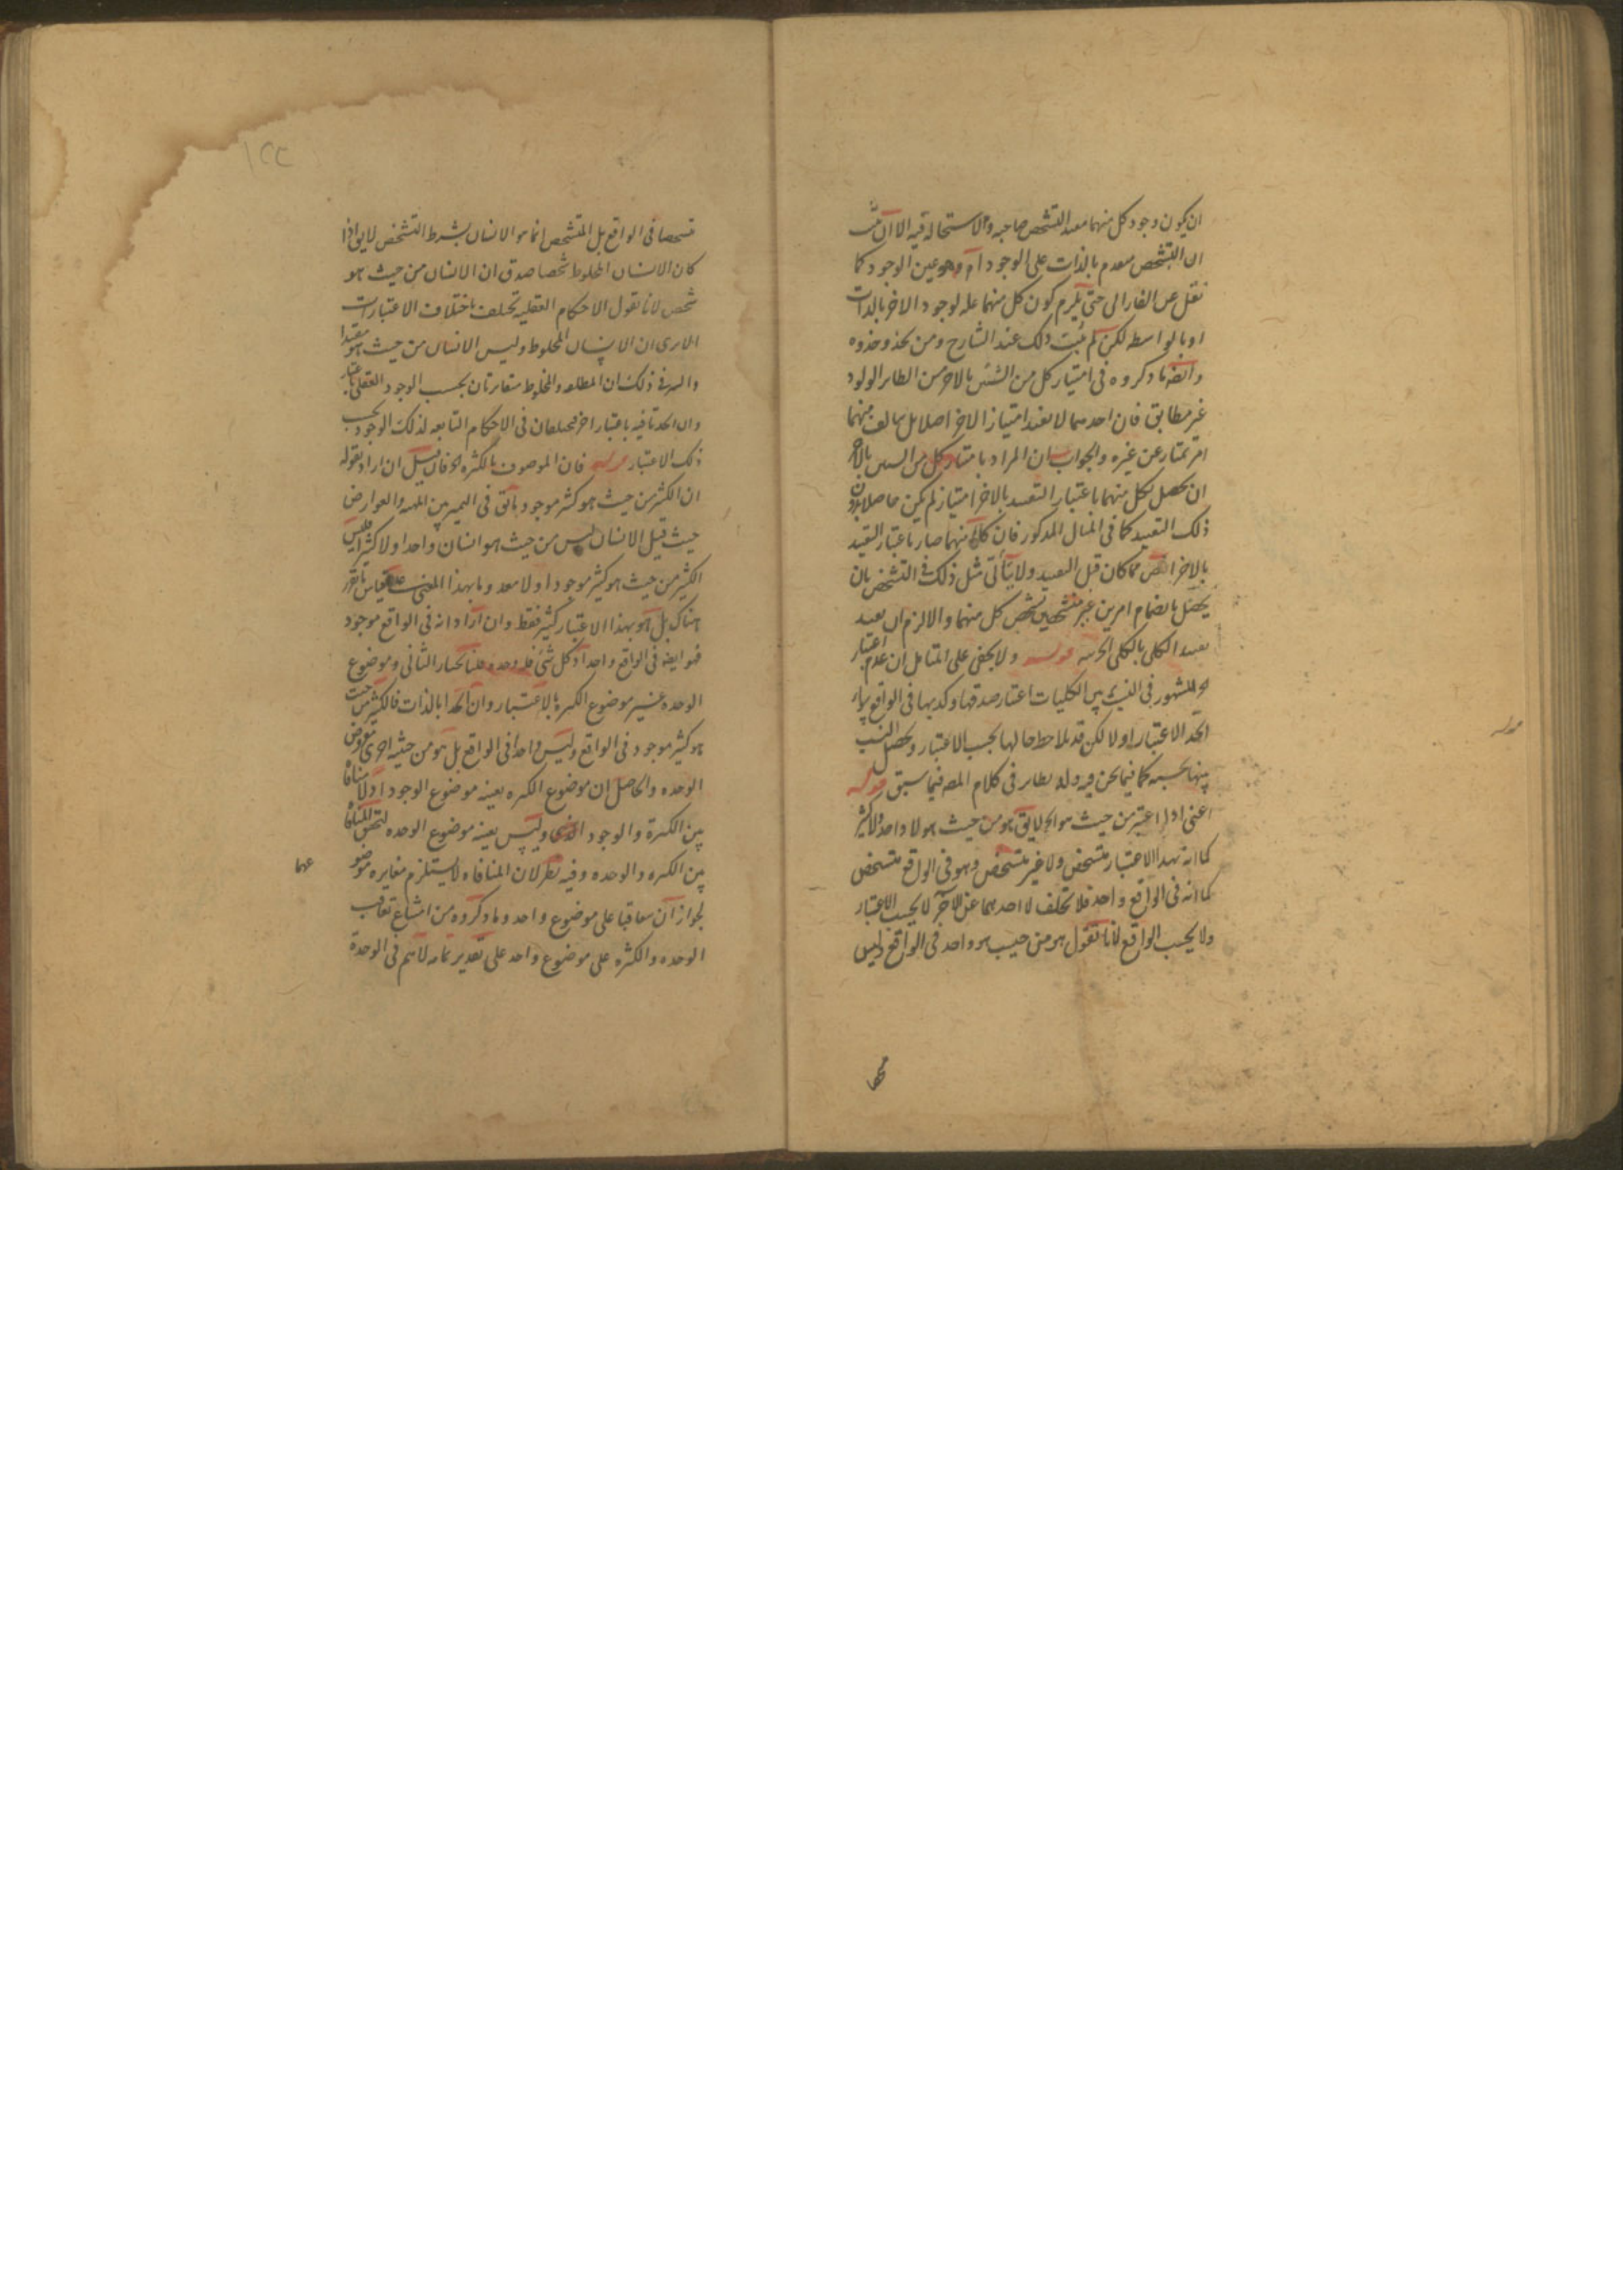 ان يكون وجود كل منهما مفيد التشخص صاحبه ولا استحالة فيه الا ان
ان التشخص مقدم بالذات على الوجود او هو عين الوجود كما
نقل عن الفارابى حتى يلزم كون كل منهما علة لوجود الاخر بالذات
او بالواسطه لكن لم يثبت ذلك عند الشارح ومن يحذو حذوه
وايضا ما ذكروه فى امتياز كل من الشيئين بالاخر من الطائر الولود
غير مطابق فان احدهما لا يفيد امتياز الاخر اصلا بل منهما
امر يمتاز عن غيره والجواب ان المراد بامتياز كل من الشيئين بالاخر
ان يحصل لكل منهما باعتبار التقييد بالاخر امتياز لم يكن حاصلا بدون
ذلك التقييد كما فى المثال المذكور فان كلا منهما صار باعتبار التقييد
بالاخر اخص مما كان قبل التقييد ولا يتأتى مثل ذلك فى التشخص بان
يحصل بانضمام امرين غير متشخصين تشخص كل منهما والا لزم ان يفيد
تقييد الكلى بالكلى الجزئيه قوله ولا يخفى على المتامل ان عدم اعتبار
المشهور فى النسب بين الكليات اعتبار صدقها وكذبها فى الواقع
الاعتبار اولا لكن قد يلاحظ حالها بحسب الاعتبار ويحصل النسب
بينها بحسبه كما فيما نحن فيه وله نظاير فى كلام المصـ فيما سبق قوله
اعنى اذا اعتبر من حيث هو لا يقـ هو من حيث هو لا واحد ولا كثير
كما انه بهذا الاعتبار متشخص ولا غير متشخص وهو فى الواقع متشخص
كما انه فى الواقع واحد فلا تخلف لاحدهما عن الاخر لا بحسب الاعتبار
ولا بحسب الواقع لانا نقول هو من حيث هو واحد فى الواقع وليس
متشخصا فى الواقع بل المتشخص انما هو الانسان بشرط التشخص لا يق اذا
كان الانسان المخلوط شخصا صدق ان الانسان من حيث هو
شخص لانا نقول الاحكام العقليه تختلف باختلاف الاعتبارات
الا يرى ان الانسان المخلوط وليس الانسان من حيث هو مقيدا
والسر فى ذلك ان المطلقه والمخلوط متغايرتان بحسب الوجود العقلى باعتبار
وان اتحدتا فيه باعتبار اخر فيختلفان فى الاحكام التابعه لذلك الوجود بحسب
ذلك الاعتبار قوله فان الموصوف بالكثره فان قيل ان اراد بقوله
ان الكثير من حيث هو كثير موجود ما سبق فى التمييز بين المهيه والعوارض
حيث قيل الانسان ليس من حيث هو انسان واحدا ولا كثيرا فليس
الكثير من حيث هو كثير موجودا ولا معدوما بهذا المعنى على قياس ما تقرر
هناك بل هو بهذا الاعتبار كثير فقط وان اراد انه فى الواقع موجود
فهو ايضا فى الواقع واحد اذ كل شئ فله وحده قلنا نختار الثانى وموضوع
الوحده غير موضوع الكثره بالاعتبار وان اتحدا بالذات فالكثير من حيث
هو كثير موجود فى الواقع وليس واحدا فى الواقع بل هو من حيثيه اخرى معروض
الوحده والحاصل ان موضوع الكثره بعينه موضوع الوجود اذ لا منافاة
بين الكثرة والوجود وليس بعينه موضوع الوحده لتحقق المنافاة
بين الكثره والوحده وفيه نظر لان المنافاه لا يستلزم مغايره موضو
عهما
لجواز ان يتعاقبا على موضوع واحد وما ذكروه من امتناع تعاقب
الوحده والكثره على موضوع واحد على تقدير تمامه لا يتم فى الوحدة